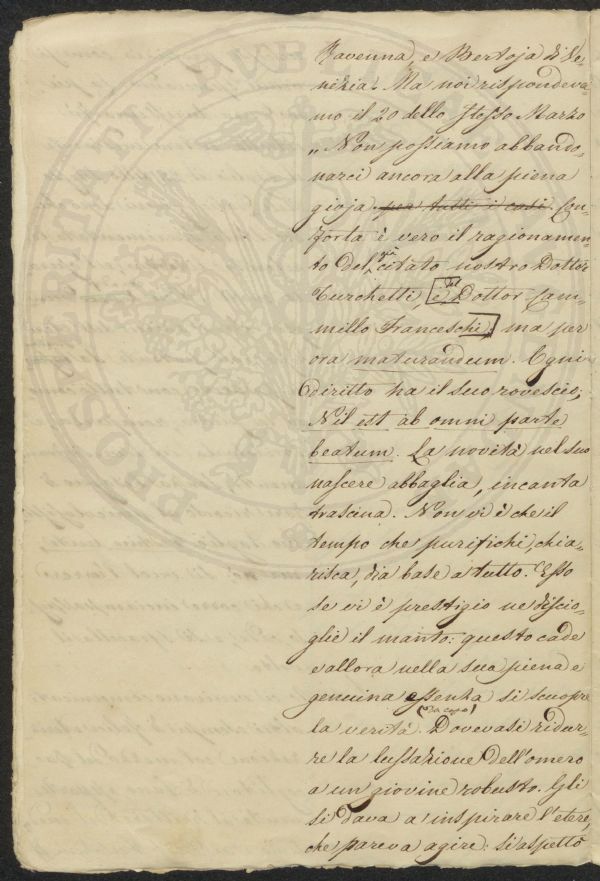 Ravenna, e Bertoja di Ve-
nezia. Ma noi rispondeva-
mo il 20 dello stesso Marzo
„Non possiamo abbando-
narci ancora alla piena
gioja per tutti i casi. Con-
forta è vero il ragionamen-
to del già citato nostro Dottor
Turchetti, e Dottor Cam-
millo Franceschi, ma per
ora maturandum. Ogni
diritto ha il suo rovescio;
Nil est ab omni parte
beatum. La novità nel suo
nascere abbaglia, incanta
trascina. Non vi è che il
tempo che purifichi, chia-
risca, dia base a tutto. Esso
se vi è prestigio ne discio-
glie il manto: questo cade
e allora nella sua piena e
genuina essenza si scuopre
la verità. (Da capo) Dovevasi ridur-
re la lussazione dell'omero
a un giovine robusto. Gli
si dava a inspirare l'etere,
che pareva agire: si aspettò